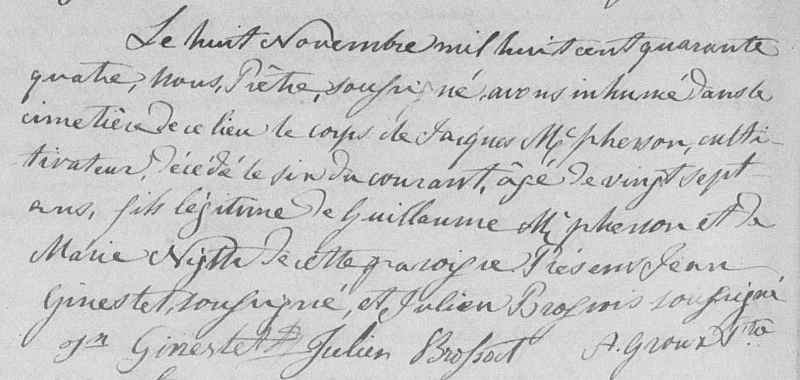 Le huit Novembre mil huit cent quarante
quatre, nous, Prêtre, soussigné, avons inhumé dans le
cimetière de ce lieu le corps de Jacques Mc pherson, culti-
tivateur, décédé le six du courant, âgé de vingt sept
ans, fils légitime de Guillaume Mc pherson et de
Marie de cette paroisse Présens Jean
Ginestet, soussigné, et Julien Brossois soussigné
Jn Ginestet Julien Brossoit A. Groux Ptre